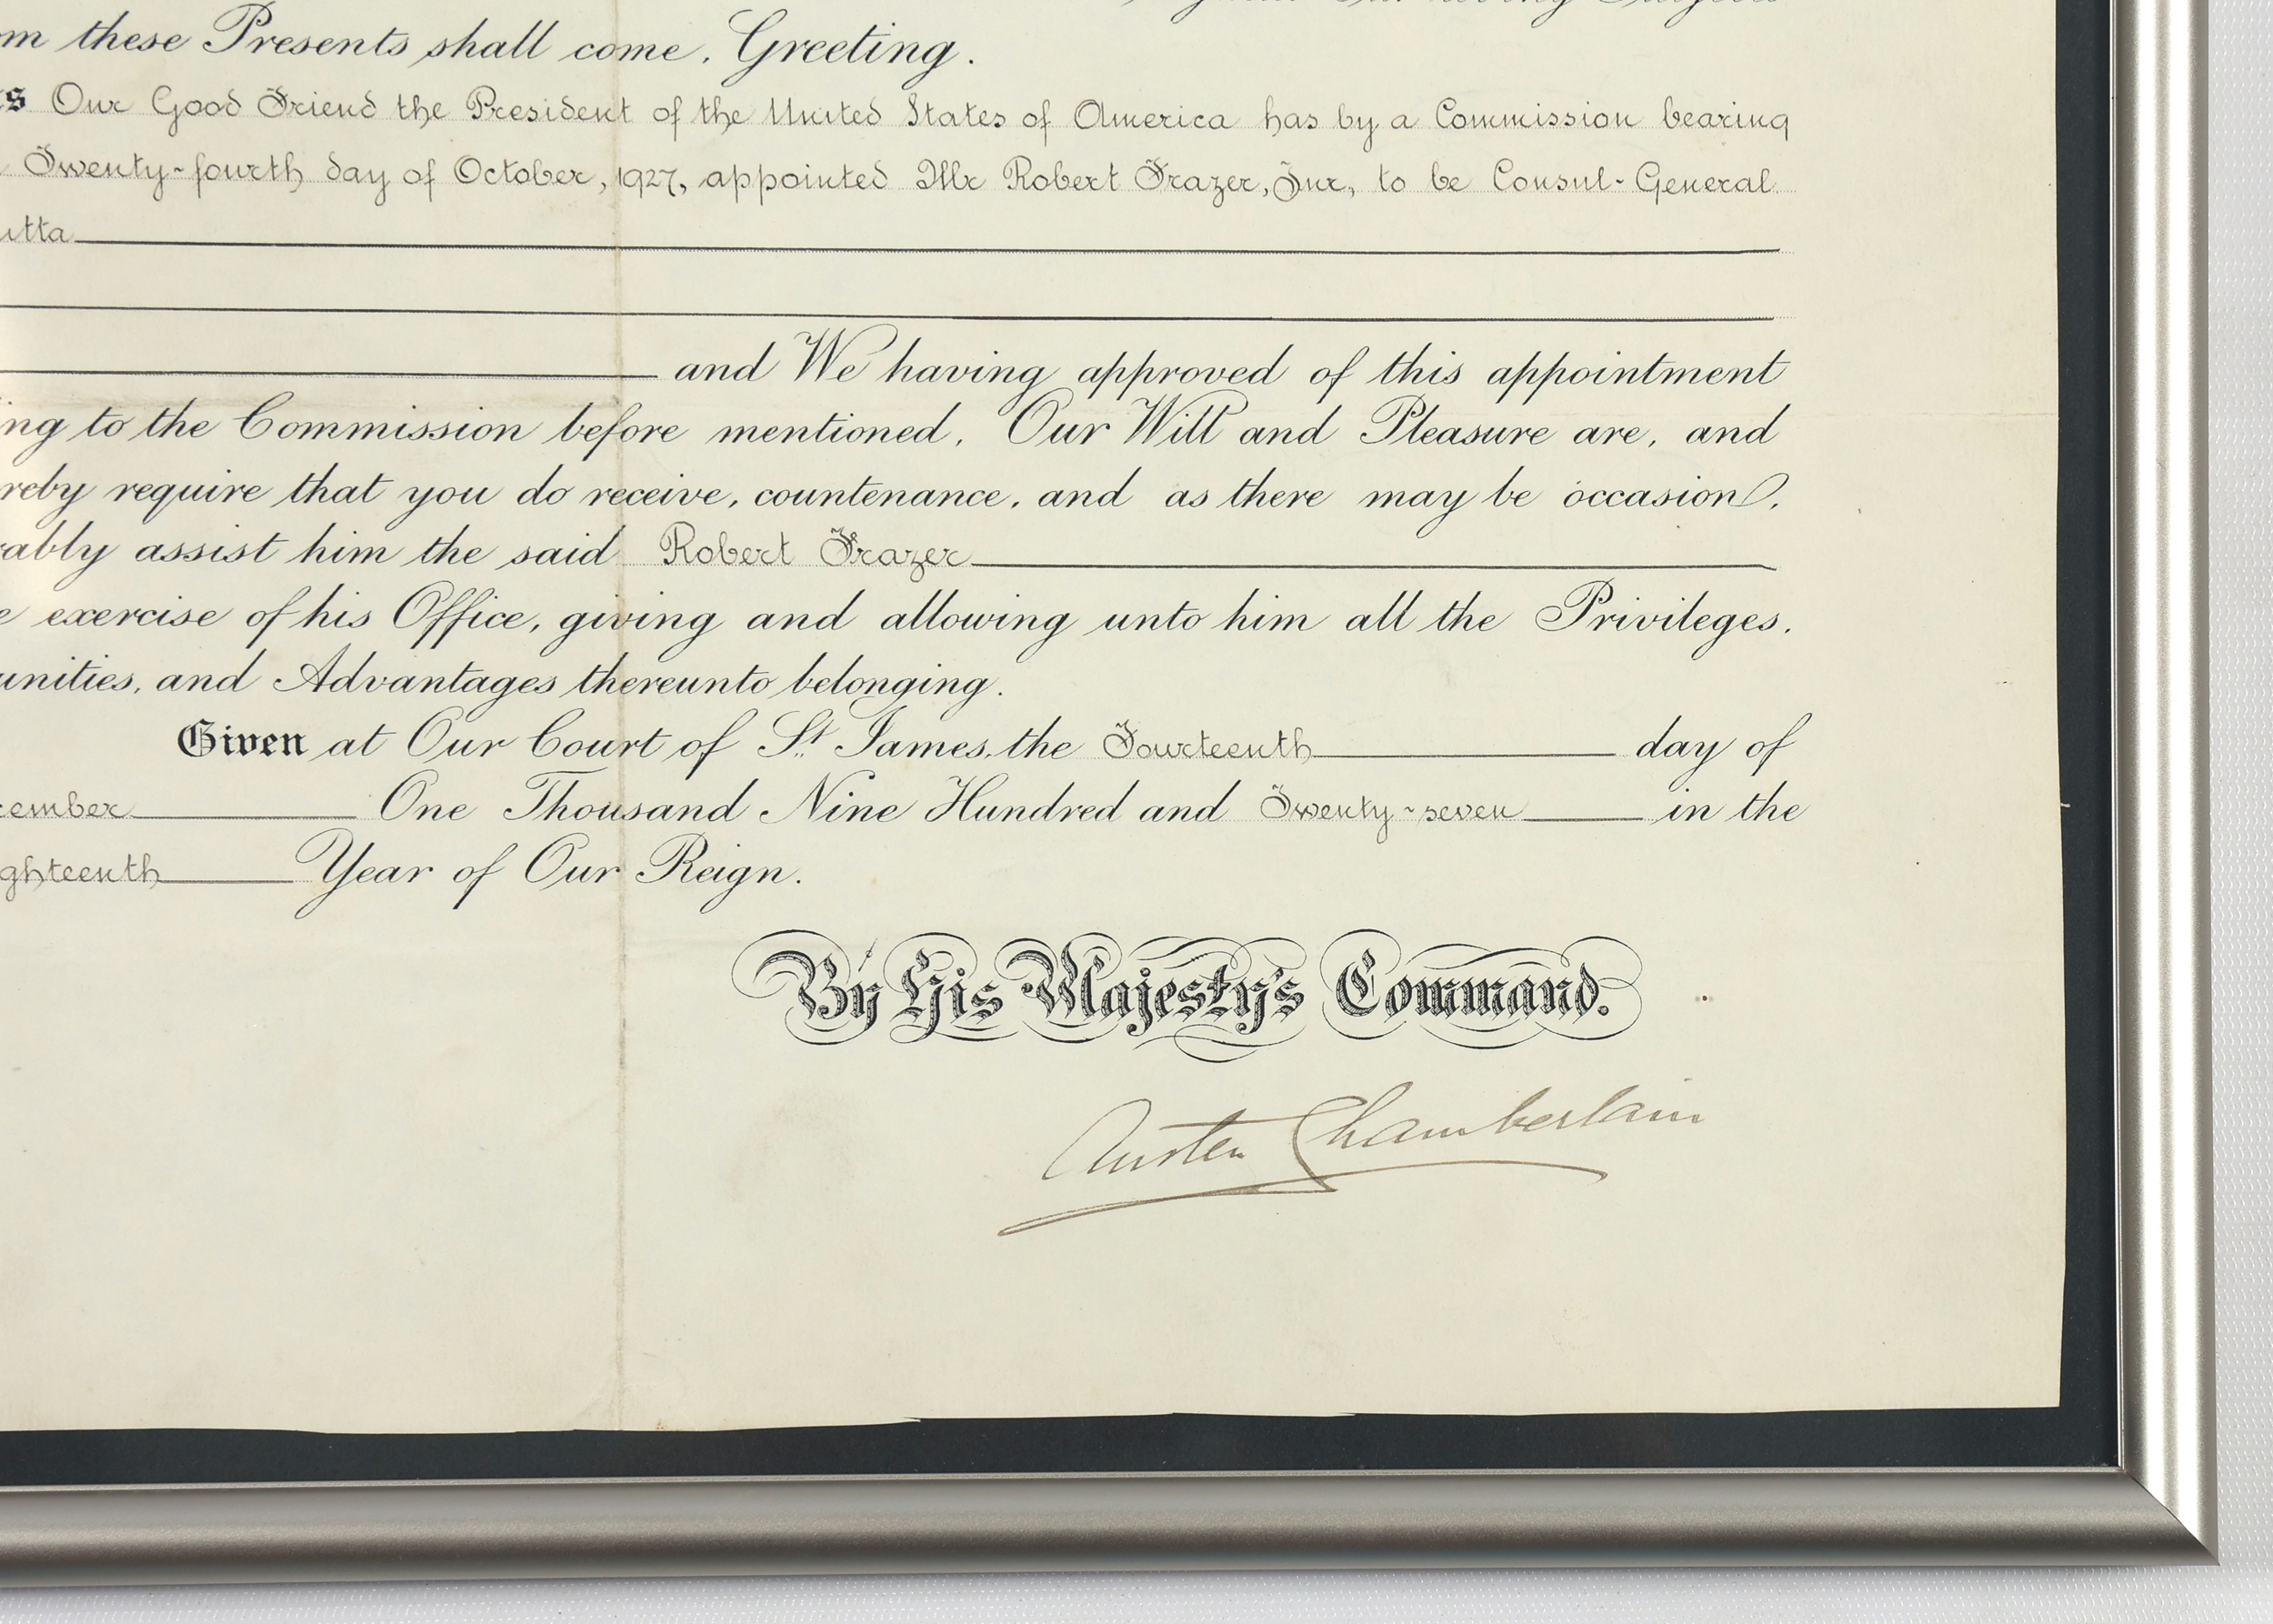 these Presents shall come, Greeting.
Our Good Friend the President of the United States of America has by a Commission bearing
Twenty-fourth day of October, 1927, appointed Mr Robert Frazer, Jnr, to be Consul-General
utta
and We having approved of this appointment
ing to the Commission before mentioned, Our Will and Pleasure are, and
reby require that you do receive, countenance, and as there may be occasion,
ably assist him the said Robert Frazer
exercise of his Office, giving and allowing unto him all the Privileges,
unities, and Advantages thereunto belonging.
Given at Our Court of St James, the Fourteenth day of
cember One Thousand Nine Hundred and Twenty-seven in the
ghteenth Year of Our Reign.
By His Majesty's Command.
Austen Chamberlain